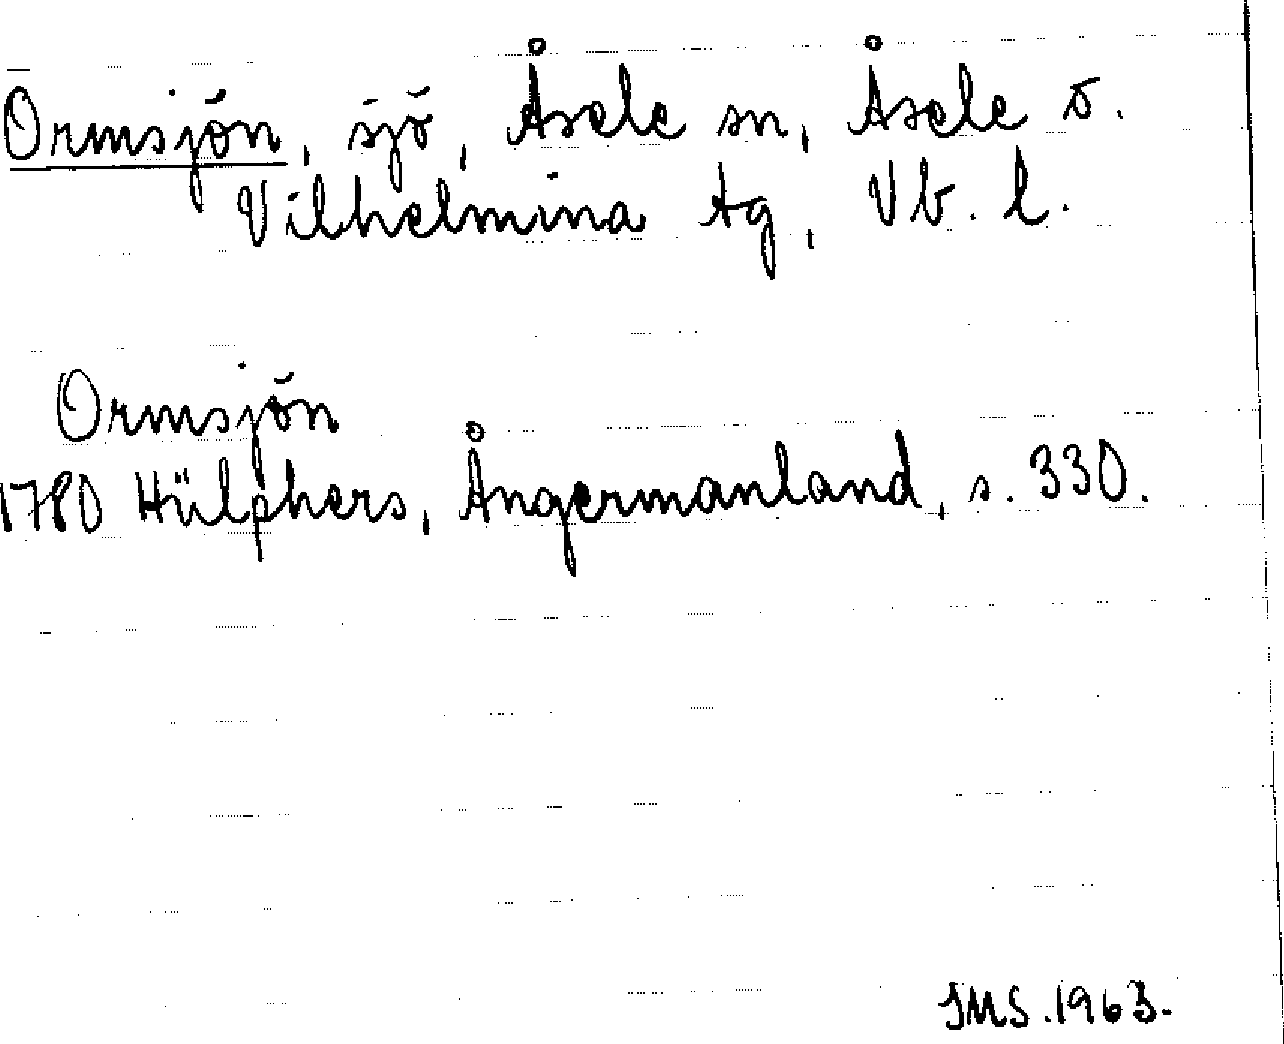 Ormsjön, sjö, Åsele sn, Åsele o.
Vilhelmina tg, Vb. l.
Ormsjön
1780 Hülphers, Ångermanland, s. 330.
SMS. 1963.